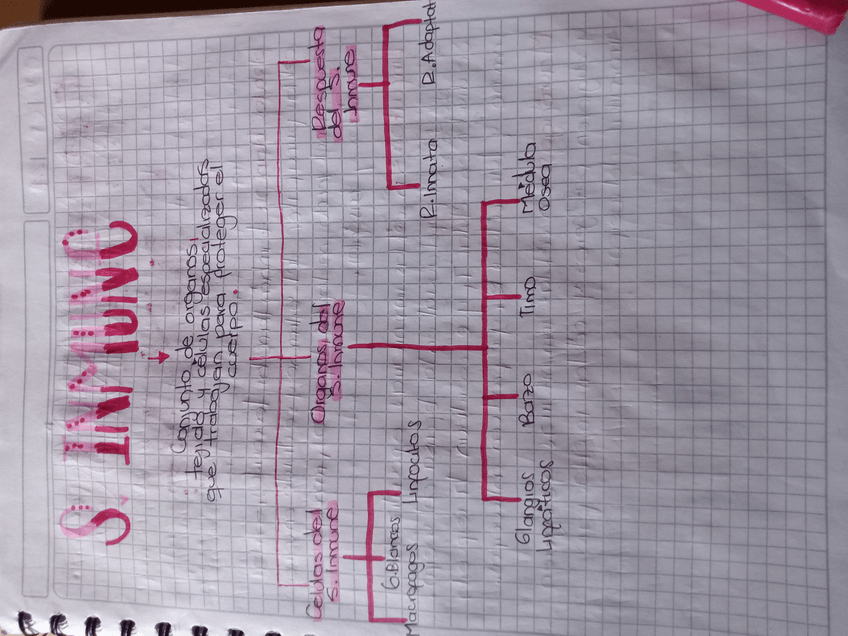 S. INMUNE
Conjunto de organos,
tejido y células especializados
que trabajan para proteger el
cuerpo.
Celulas del
S. Inmune
Organos del
S. Inmune
Respuesta
del S.
Inmune
Macrofagos
G.Blancos
Linfocitos
R.Innata
R.Adaptat
Glangios
Linfáticos
Bazo
Timo
Médula
Osea